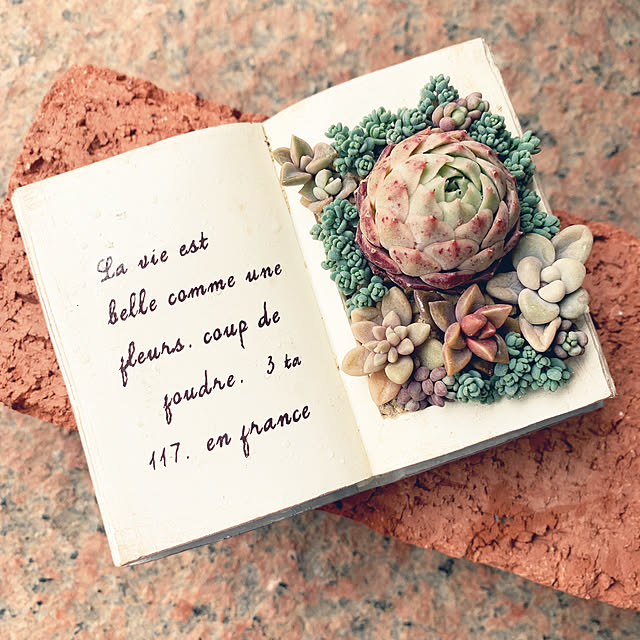 La vie est
belle comme une
fleurs. coup de
foudre. 3 ta
117. en france